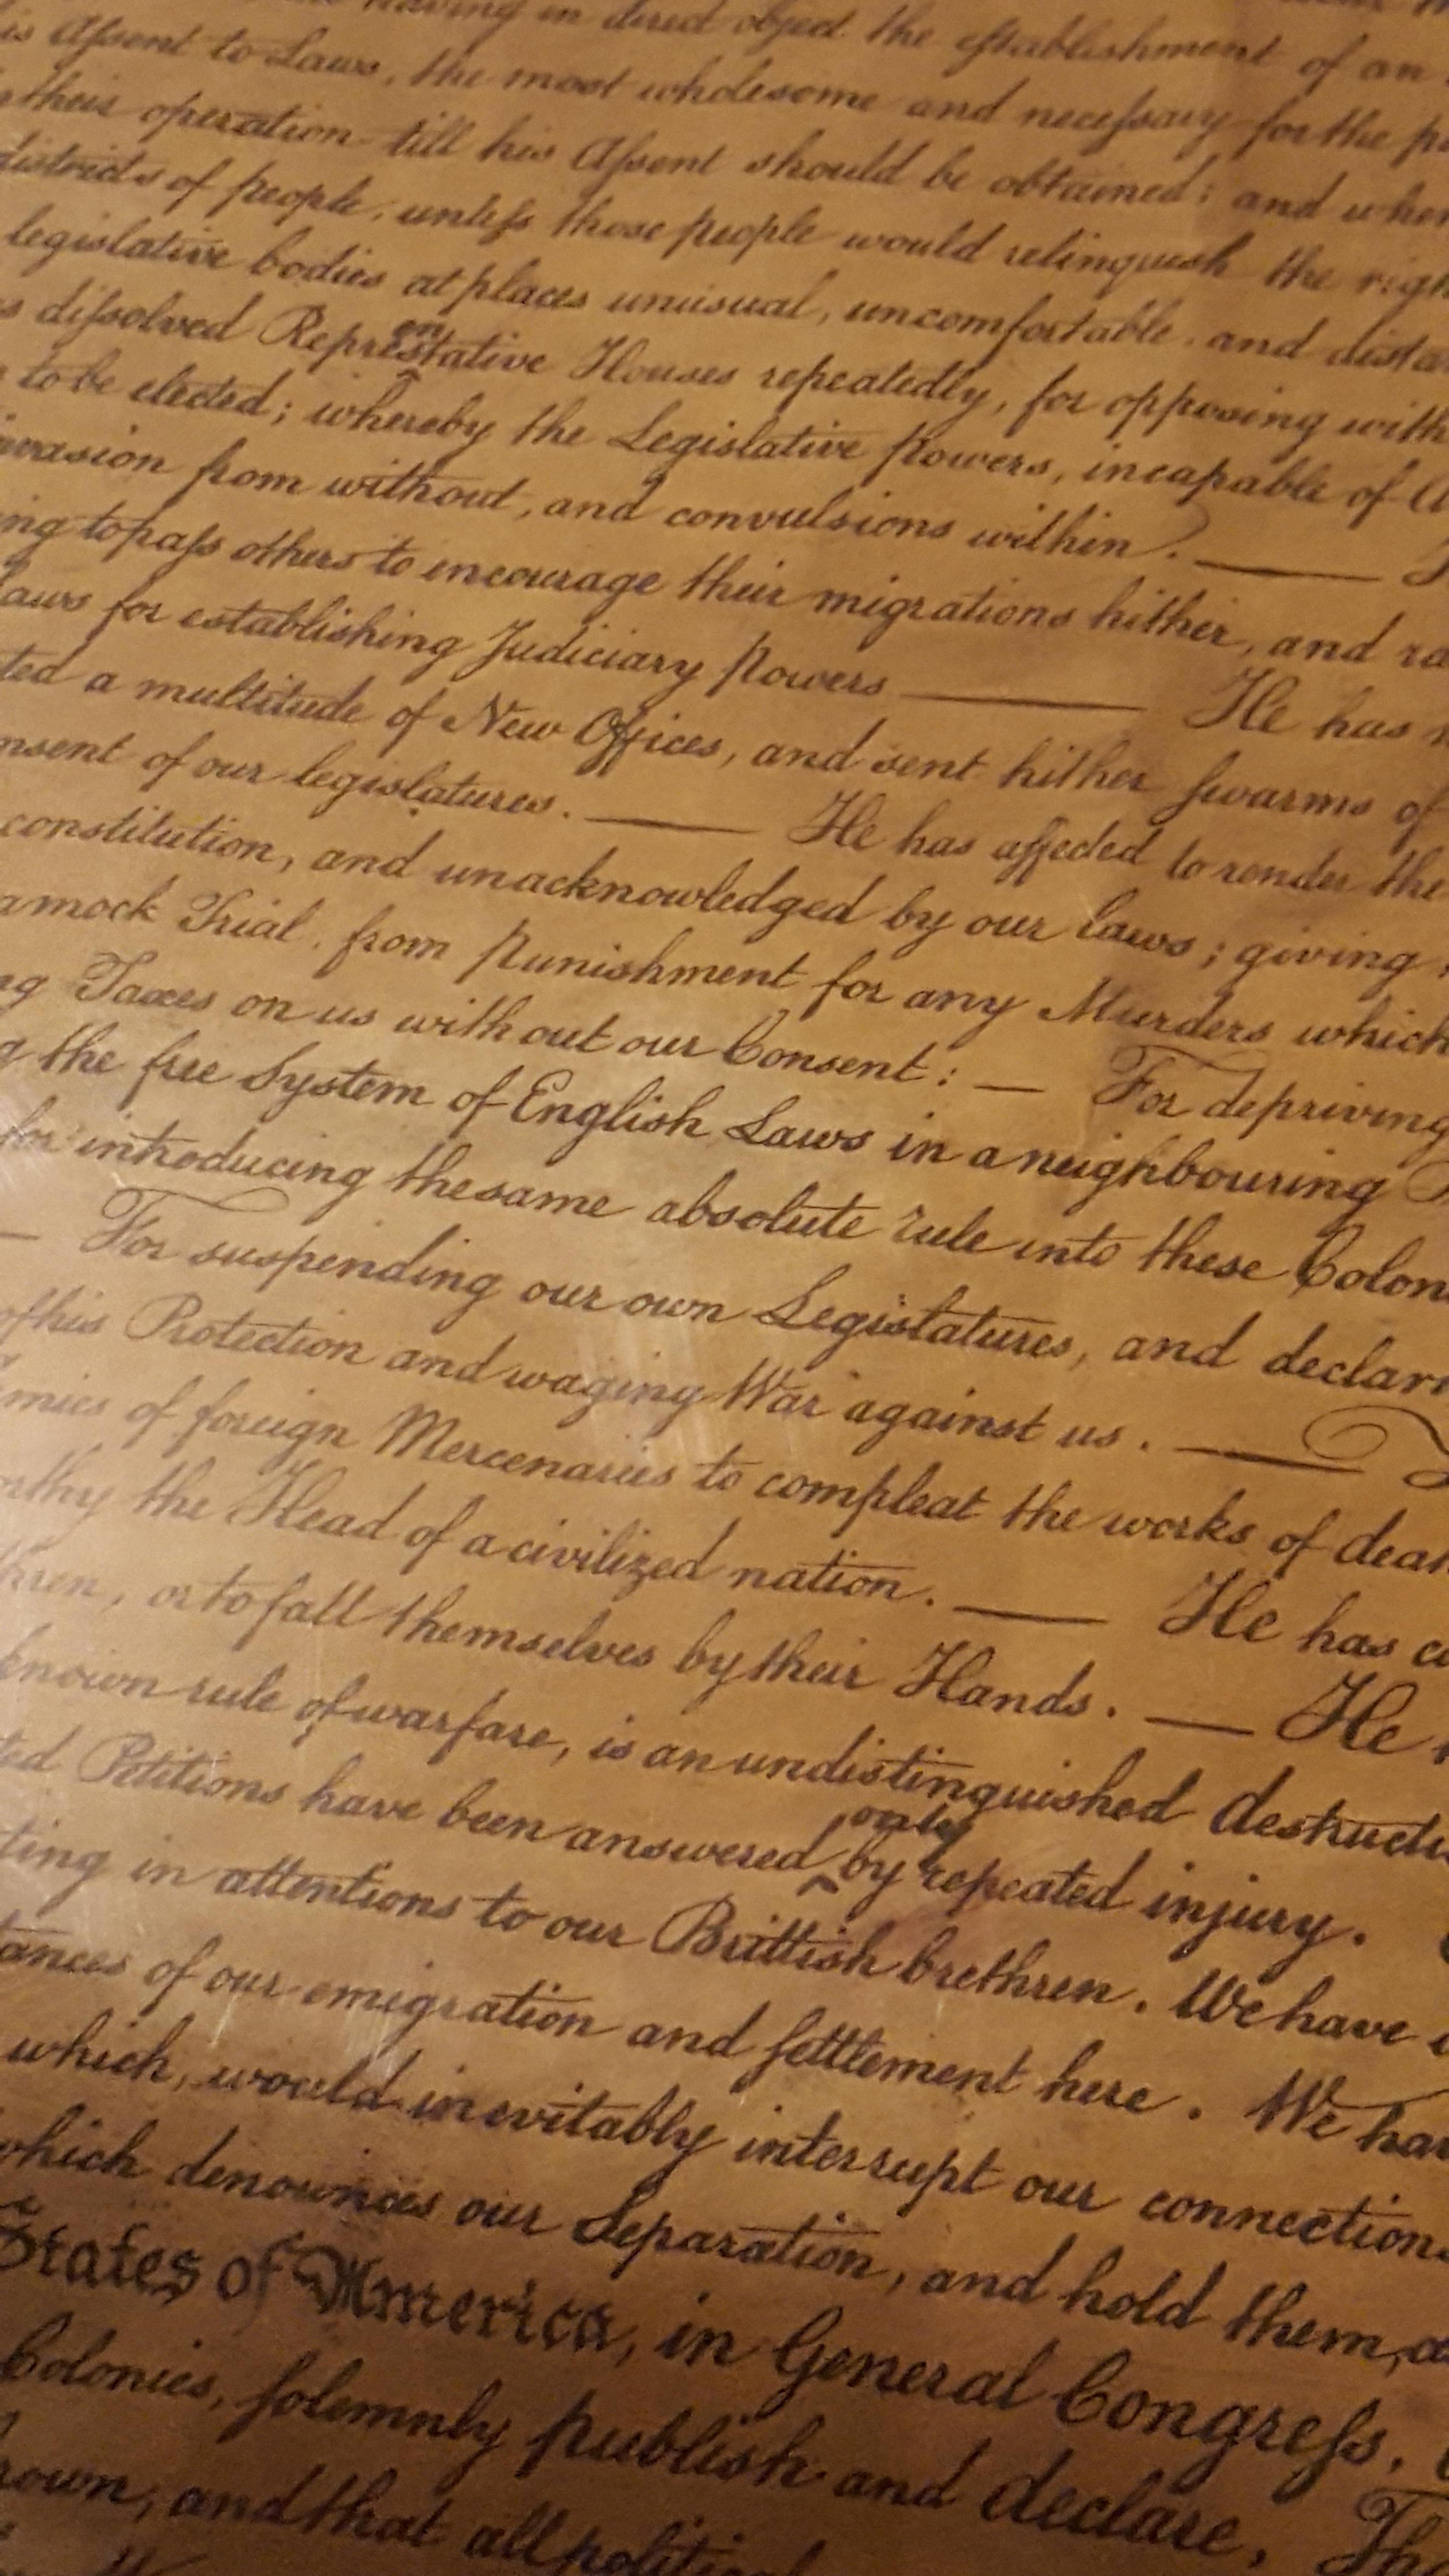 having in direct object the establishment of an
Aſsent to Laws, the most wholesome and neceſsary for the
their operation till his Aſsent should be obtained; and when
districts of people, unleſs those people would relinquish the
legislative bodies at places unusual, uncomfortable, and
diſsolved Represtative Houses repeatedly, for opposing with
en
to be elected; whereby the Legislative powers, incapable of
from without, and convulsions within.
to paſs others to encourage their migrations hither, and
for establishing Judiciary powers He has
a multitude of New Offices, and sent hither ſwarms of
of our legislatures. He has affected to render the
constitution, and unacknowledged by our laws; giving
mock Trial, from punishment for any Murders which
Taxes on us without our Consent: — For depriving
the free System of English Laws in a neighbouring
for introducing the same absolute rule into these
— For suspending our own Legislatures, and
of his Protection and waging War against us.
of foreign Mercenaries to compleat the works of
the Head of a civilized nation. He has
or to fall themselves by their Hands. — He
known rule of warfare, is an undistinguished
only
Petitions have been answered ‸ by repeated injury.
in attentions to our Brittish brethren. We have
of our emigration and ſettlement here. We
which, would inevitably interrupt our
which denounces our Separation, and hold them,
States of America, in General Congreſs,
Colonies, ſolemnly publish and declare,
and that all political